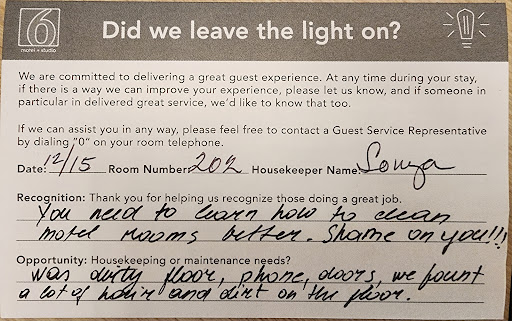 6
motel + studio
Did we leave the light on?
We are committed to delivering a great guest experience. At any time during your stay,
if there is a way we can improve your experience, please let us know, and if someone in
particular in delivered great service, we'd like to know that too.
If we can assist you in any way, please feel free to contact a Guest Service Representative
by dialing "0" on your room telephone.
Date: 12/15 Room Number: 202 Housekeeper Name: Sonya
Recognition: Thank you for helping us recognize those doing a great job.
You need to learn how to clean
motel rooms better. Shame on you!!!
Opportunity: Housekeeping or maintenance needs?
Was dirty floor, phone, doors, we fount
a lot of hair and dirt on the floor.